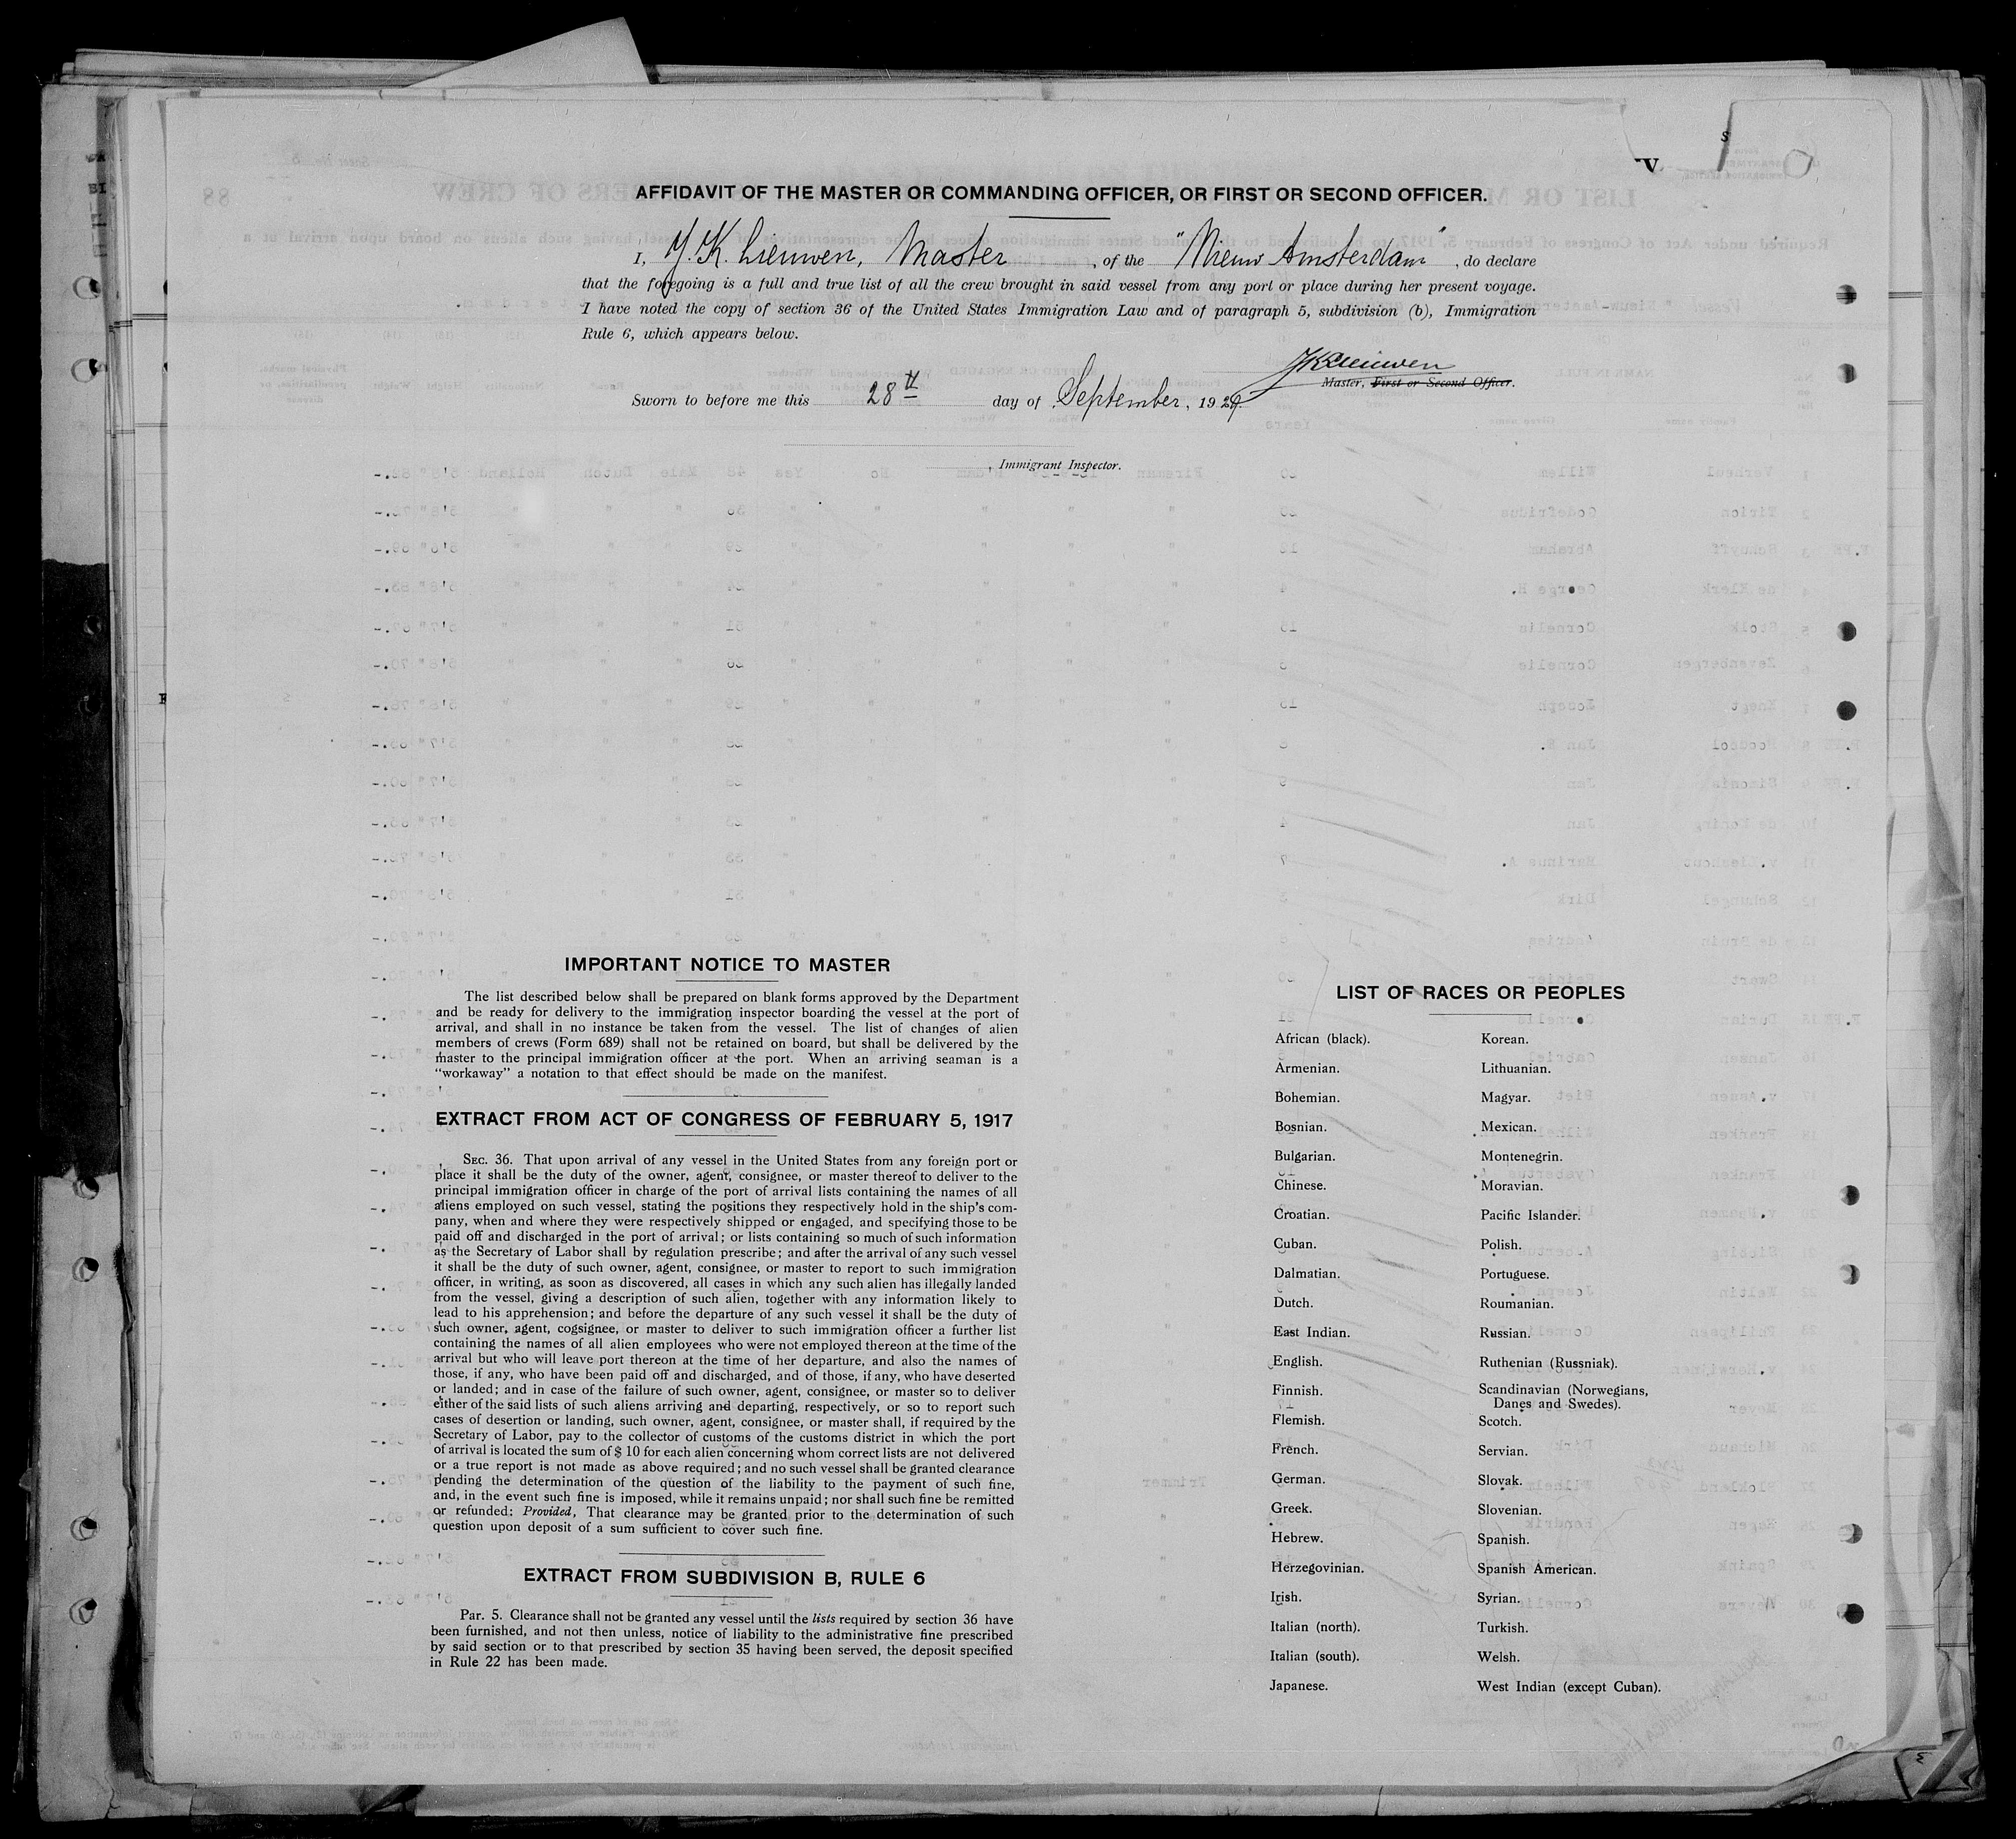 AFFIDAVIT OF THE MASTER OR COMMANDING OFFICER, OR FIRST OR SECOND OFFICER.
I, J. K. Lieuwen, Master, of the "Nieuw Amsterdam", do declare
that the foregoing is a full and true list of all the crew brought in said vessel from any port or place during her present voyage.
I have noted the copy of section 36 of the United States Immigration Law and of paragraph 5, subdivision (b), Immigration
Rule 6, which appears below.
JKLieuwen
Master, First or Second Officer.
Sworn to before me this 28th day of September, 1929.
, Immigrant Inspector.
IMPORTANT NOTICE TO MASTER
The list described below shall be prepared on blank forms approved by the Department
and be ready for delivery to the immigration inspector boarding the vessel at the port of
arrival, and shall in no instance be taken from the vessel. The list of changes of alien
members of crews (Form 689) shall not be retained on board, but shall be delivered by the
master to the principal immigration officer at the port. When an arriving seaman is a
"workaway" a notation to that effect should be made on the manifest.
EXTRACT FROM ACT OF CONGRESS OF FEBRUARY 5, 1917
SEC. 36. That upon arrival of any vessel in the United States from any foreign port or
place it shall be the duty of the owner, agent, consignee, or master thereof to deliver to the
principal immigration officer in charge of the port of arrival lists containing the names of all
aliens employed on such vessel, stating the positions they respectively hold in the ship's com-
pany, when and where they were respectively shipped or engaged, and specifying those to be
paid off and discharged in the port of arrival; or lists containing so much of such information
as the Secretary of Labor shall by regulation prescribe; and after the arrival of any such vessel
it shall be the duty of such owner, agent, consignee, or master to report to such immigration
officer, in writing, as soon as discovered, all cases in which any such alien has illegally landed
from the vessel, giving a description of such alien, together with any information likely to
lead to his apprehension; and before the departure of any such vessel it shall be the duty of
such owner, agent, cogsignee, or master to deliver to such immigration officer a further list
containing the names of all alien employees who were not employed thereon at the time of the
arrival but who will leave port thereon at the time of her departure, and also the names of
those, if any, who have been paid off and discharged, and of those, if any, who have deserted
or landed; and in case of the failure of such owner, agent, consignee, or master so to deliver
either of the said lists of such aliens arriving and departing, respectively, or so to report such
cases of desertion or landing, such owner, agent, consignee, or master shall, if required by the
Secretary of Labor, pay to the collector of customs of the customs district in which the port
of arrival is located the sum of $ 10 for each alien concerning whom correct lists are not delivered
or a true report is not made as above required; and no such vessel shall be granted clearance
pending the determination of the question of the liability to the payment of such fine,
and, in the event such fine is imposed, while it remains unpaid; nor shall such fine be remitted
or refunded: Provided, That clearance may be granted prior to the determination of such
question upon deposit of a sum sufficient to cover such fine.
EXTRACT FROM SUBDIVISION B, RULE 6
Par. 5. Clearance shall not be granted any vessel until the lists required by section 36 have
been furnished, and not then unless, notice of liability to the administrative fine prescribed
by said section or to that prescribed by section 35 having been served, the deposit specified
in Rule 22 has been made.
LIST OF RACES OR PEOPLES
African (black).
Armenian.
Bohemian.
Bosnian.
Bulgarian.
Chinese.
Croatian.
Cuban.
Dalmatian.
Dutch.
East Indian.
English.
Finnish.
Flemish.
French.
German.
Greek.
Hebrew.
Herzegovinian.
Irish.
Italian (north).
Italian (south).
Japanese.
Korean.
Lithuanian.
Magyar.
Mexican.
Montenegrin.
Moravian.
Pacific Islander.
Polish.
Portuguese.
Roumanian.
Russian.
Ruthenian (Russniak).
Scandinavian (Norwegians,
Danes and Swedes).
Scotch.
Servian.
Slovak.
Slovenian.
Spanish.
Spanish American.
Syrian.
Turkish.
Welsh.
West Indian (except Cuban).